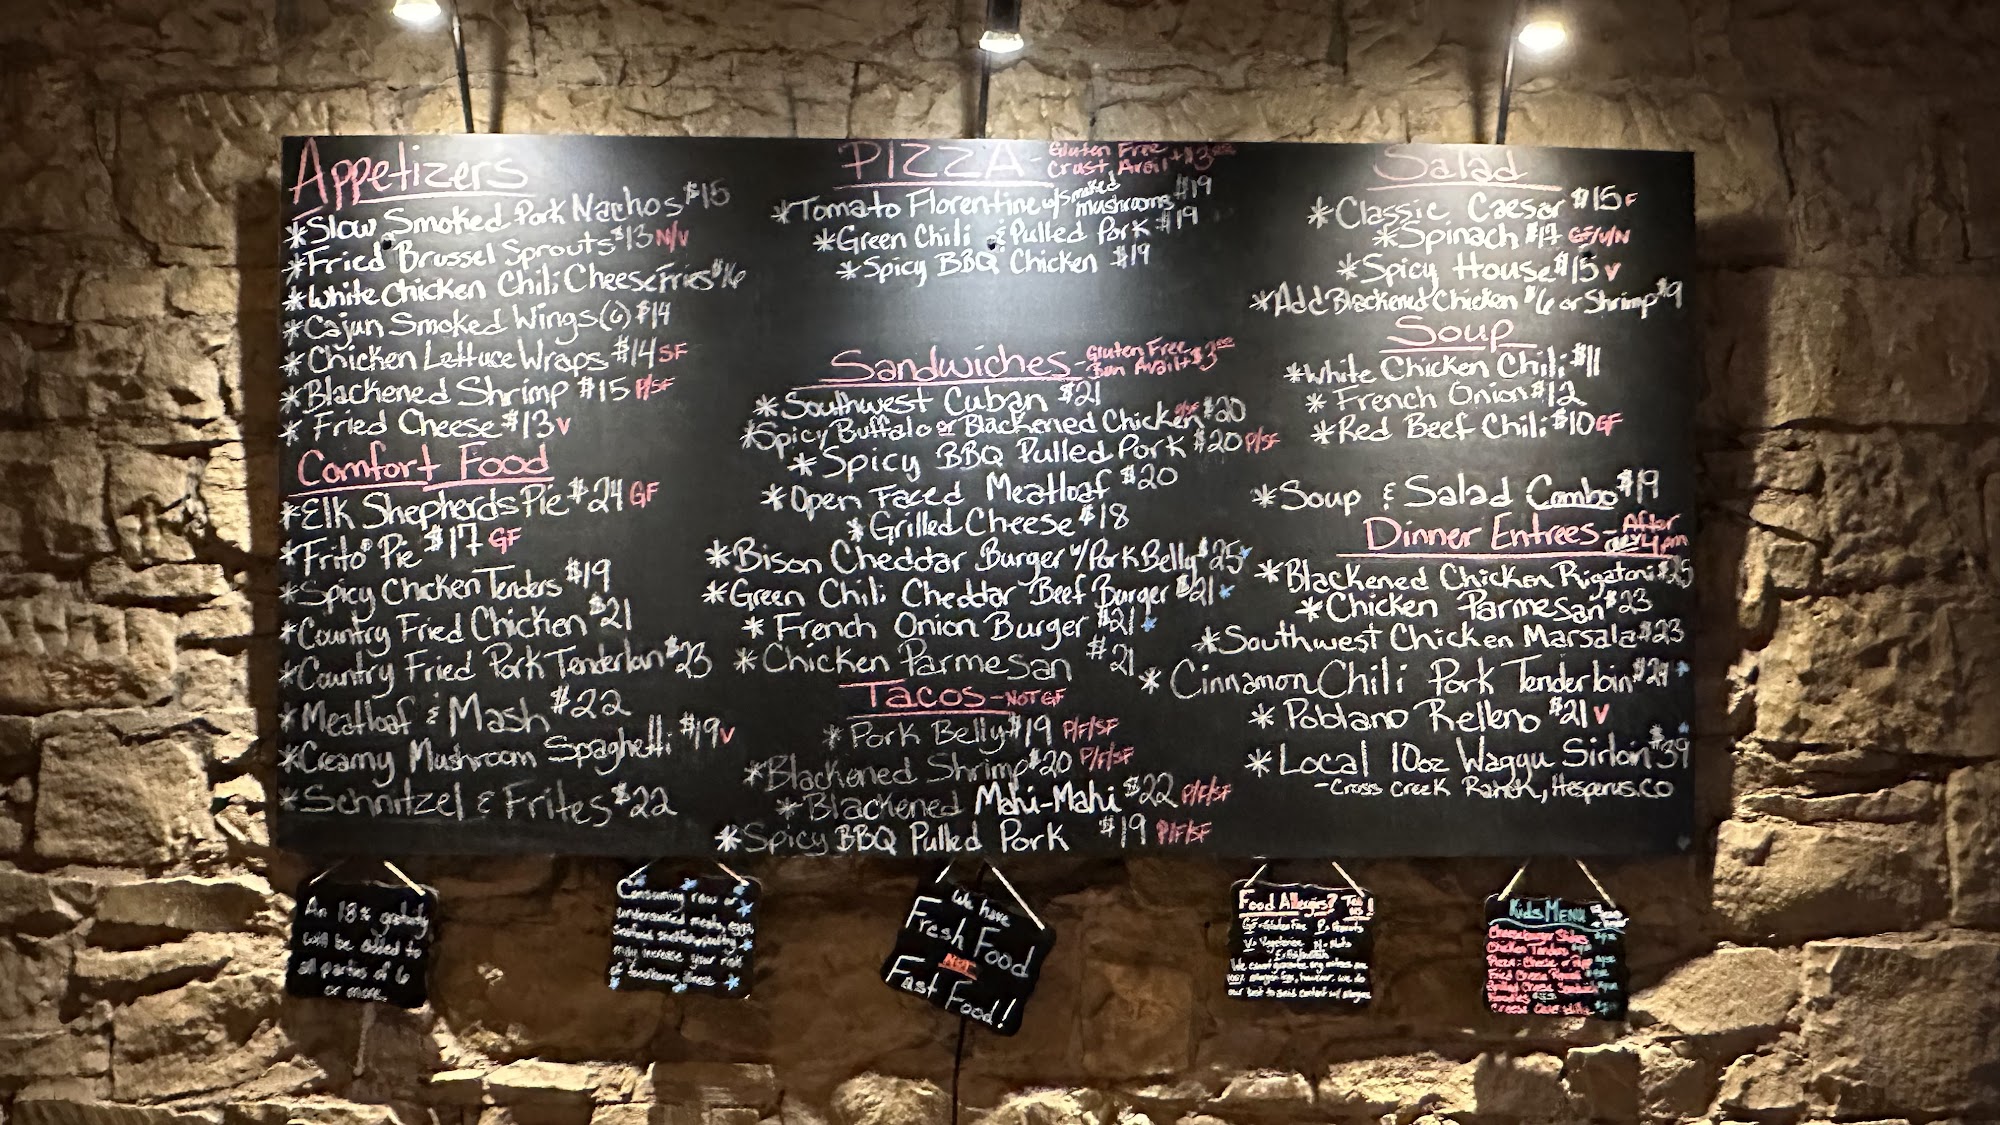 Appetizers
*Slow Smoked Pork Nachos $15
*Fried Brussel Sprouts $13 N/V
*White Chicken Chili Cheese Fries $16
*Cajun Smoked Wings (6) $14
*Chicken Lettuce Wraps $14 SF
*Blackened Shrimp $15 P/SF
* Fried Cheese $13 V
Comfort Food
*Elk Shepherds Pie $24 GF
*Frito Pie $17 GF
*Spicy Chicken Tenders $19
*Country Fried Chicken $21
*Country Fried Pork Tenderloin $23
*Meatloaf & Mash $22
*Creamy Mushroom Spaghetti $19 V
*Schnitzel & Frites $22
PIZZA - Gluten Free
Crust Avail +$3.00
*Tomato Florentine w/ smoked mushrooms $19
*Green Chili & Pulled Pork $19
*Spicy BBQ Chicken $19
Sandwiches - Gluten Free
Bun Avail +$3.00
*Southwest Cuban $21
*Spicy Buffalo or Blackened Chicken $20
*Spicy BBQ Pulled Pork $20 P/SF
*Open Faced Meatloaf $20
*Grilled Cheese $18
*Bison Cheddar Burger w/ Pork Belly $25*
*Green Chili Cheddar Beef Burger $21*
* French Onion Burger $21*
*Chicken Parmesan $21
Tacos - NOT GF
*Pork Belly $19 P/F/SF
*Blackened Shrimp $20 P/F/SF
*Blackened Mahi-Mahi $22 P/F/SF
*Spicy BBQ Pulled Pork $19 P/F/SF
Salad
*Classic Caesar $15 F
*Spinach $17 GF/V/N
*Spicy House $15 V
*Add Blackened Chicken $6 or Shrimp $9
Soup
*White Chicken Chili $11
* French Onion $12
*Red Beef Chili $10 GF
*Soup & Salad Combo $19
Dinner Entrees - After
4pm
*Blackened Chicken Rigatoni $25
*Chicken Parmesan $23
*Southwest Chicken Marsala $23
*Cinnamon Chili Pork Tenderloin $24 *
* Poblano Relleno $21 V
*Local 10oz Waggu Sirloin $39 *
-Cross Creek Ranch, Hesperus, CO
An 18% gratuity
will be added to
all parties of 6
or more.
Consuming raw or
undercooked meats, eggs,
seafood shellfish, poultry
may increase your risk
of foodborne illness
We have
Fresh Food
NOT
Fast Food!
Food Allergies? Tell us!
GF-Gluten Free P-Peanuts
V-Vegetarian N-Nuts
We cannot guarantee any entrees are
100% allergen free, however, we do
our best to avoid contact w/ allergens
Kids MENU
Cheeseburger Sliders
Chicken Tenders
Pizza: Cheese or Pepp
Grilled Cheese Sandwich
Noodles